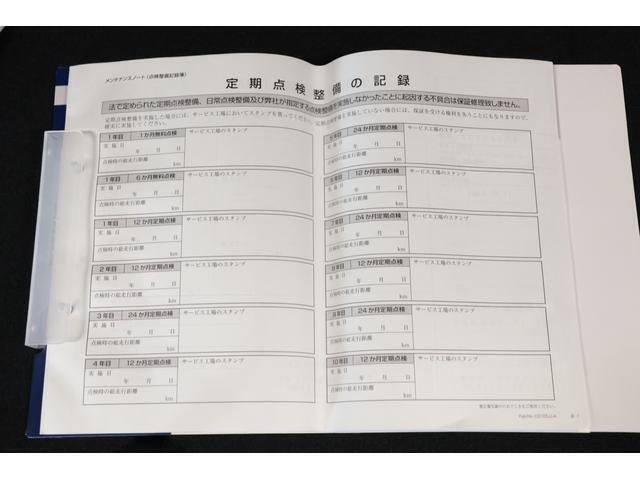 メンテナンスノート(点検整備記録簿)
定期点検整備の記録
法で定められた定期点検整備、日常点検整備及び弊社が指定する点検整備を実施しなかったことに起因する不具合は保証修理致しません。
定期点検整備を実施した場合には、サービス工場においてスタンプを貰ってください。
確実に実施してください。
1年目 1か月無料点検 サービス工場のスタンプ
実施日
年 月 日
点検時の総走行距離
km
1年目 6か月無料点検 サービス工場のスタンプ
実施日
年 月 日
点検時の総走行距離
km
1年目 12か月定期点検 サービス工場のスタンプ
実施日
年 月 日
点検時の総走行距離
km
2年目 12か月定期点検 サービス工場のスタンプ
実施日
年 月 日
点検時の総走行距離
km
3年目 24か月定期点検 サービス工場のスタンプ
実施日
年 月 日
点検時の総走行距離
km
4年目 12か月定期点検 サービス工場のスタンプ
実施日
年 月 日
点検時の総走行距離
km
5年目 24か月定期点検 サービス工場のスタンプ
実施日
年 月 日
点検時の総走行距離
km
6年目 12か月定期点検 サービス工場のスタンプ
実施日
年 月 日
点検時の総走行距離
km
7年目 24か月定期点検 サービス工場のスタンプ
実施日
年 月 日
点検時の総走行距離
km
8年目 12か月定期点検 サービス工場のスタンプ
実施日
年 月 日
点検時の総走行距離
km
9年目 24か月定期点検 サービス工場のスタンプ
実施日
年 月 日
点検時の総走行距離
km
10年目 12か月定期点検 サービス工場のスタンプ
実施日
年 月 日
点検時の総走行距離
km